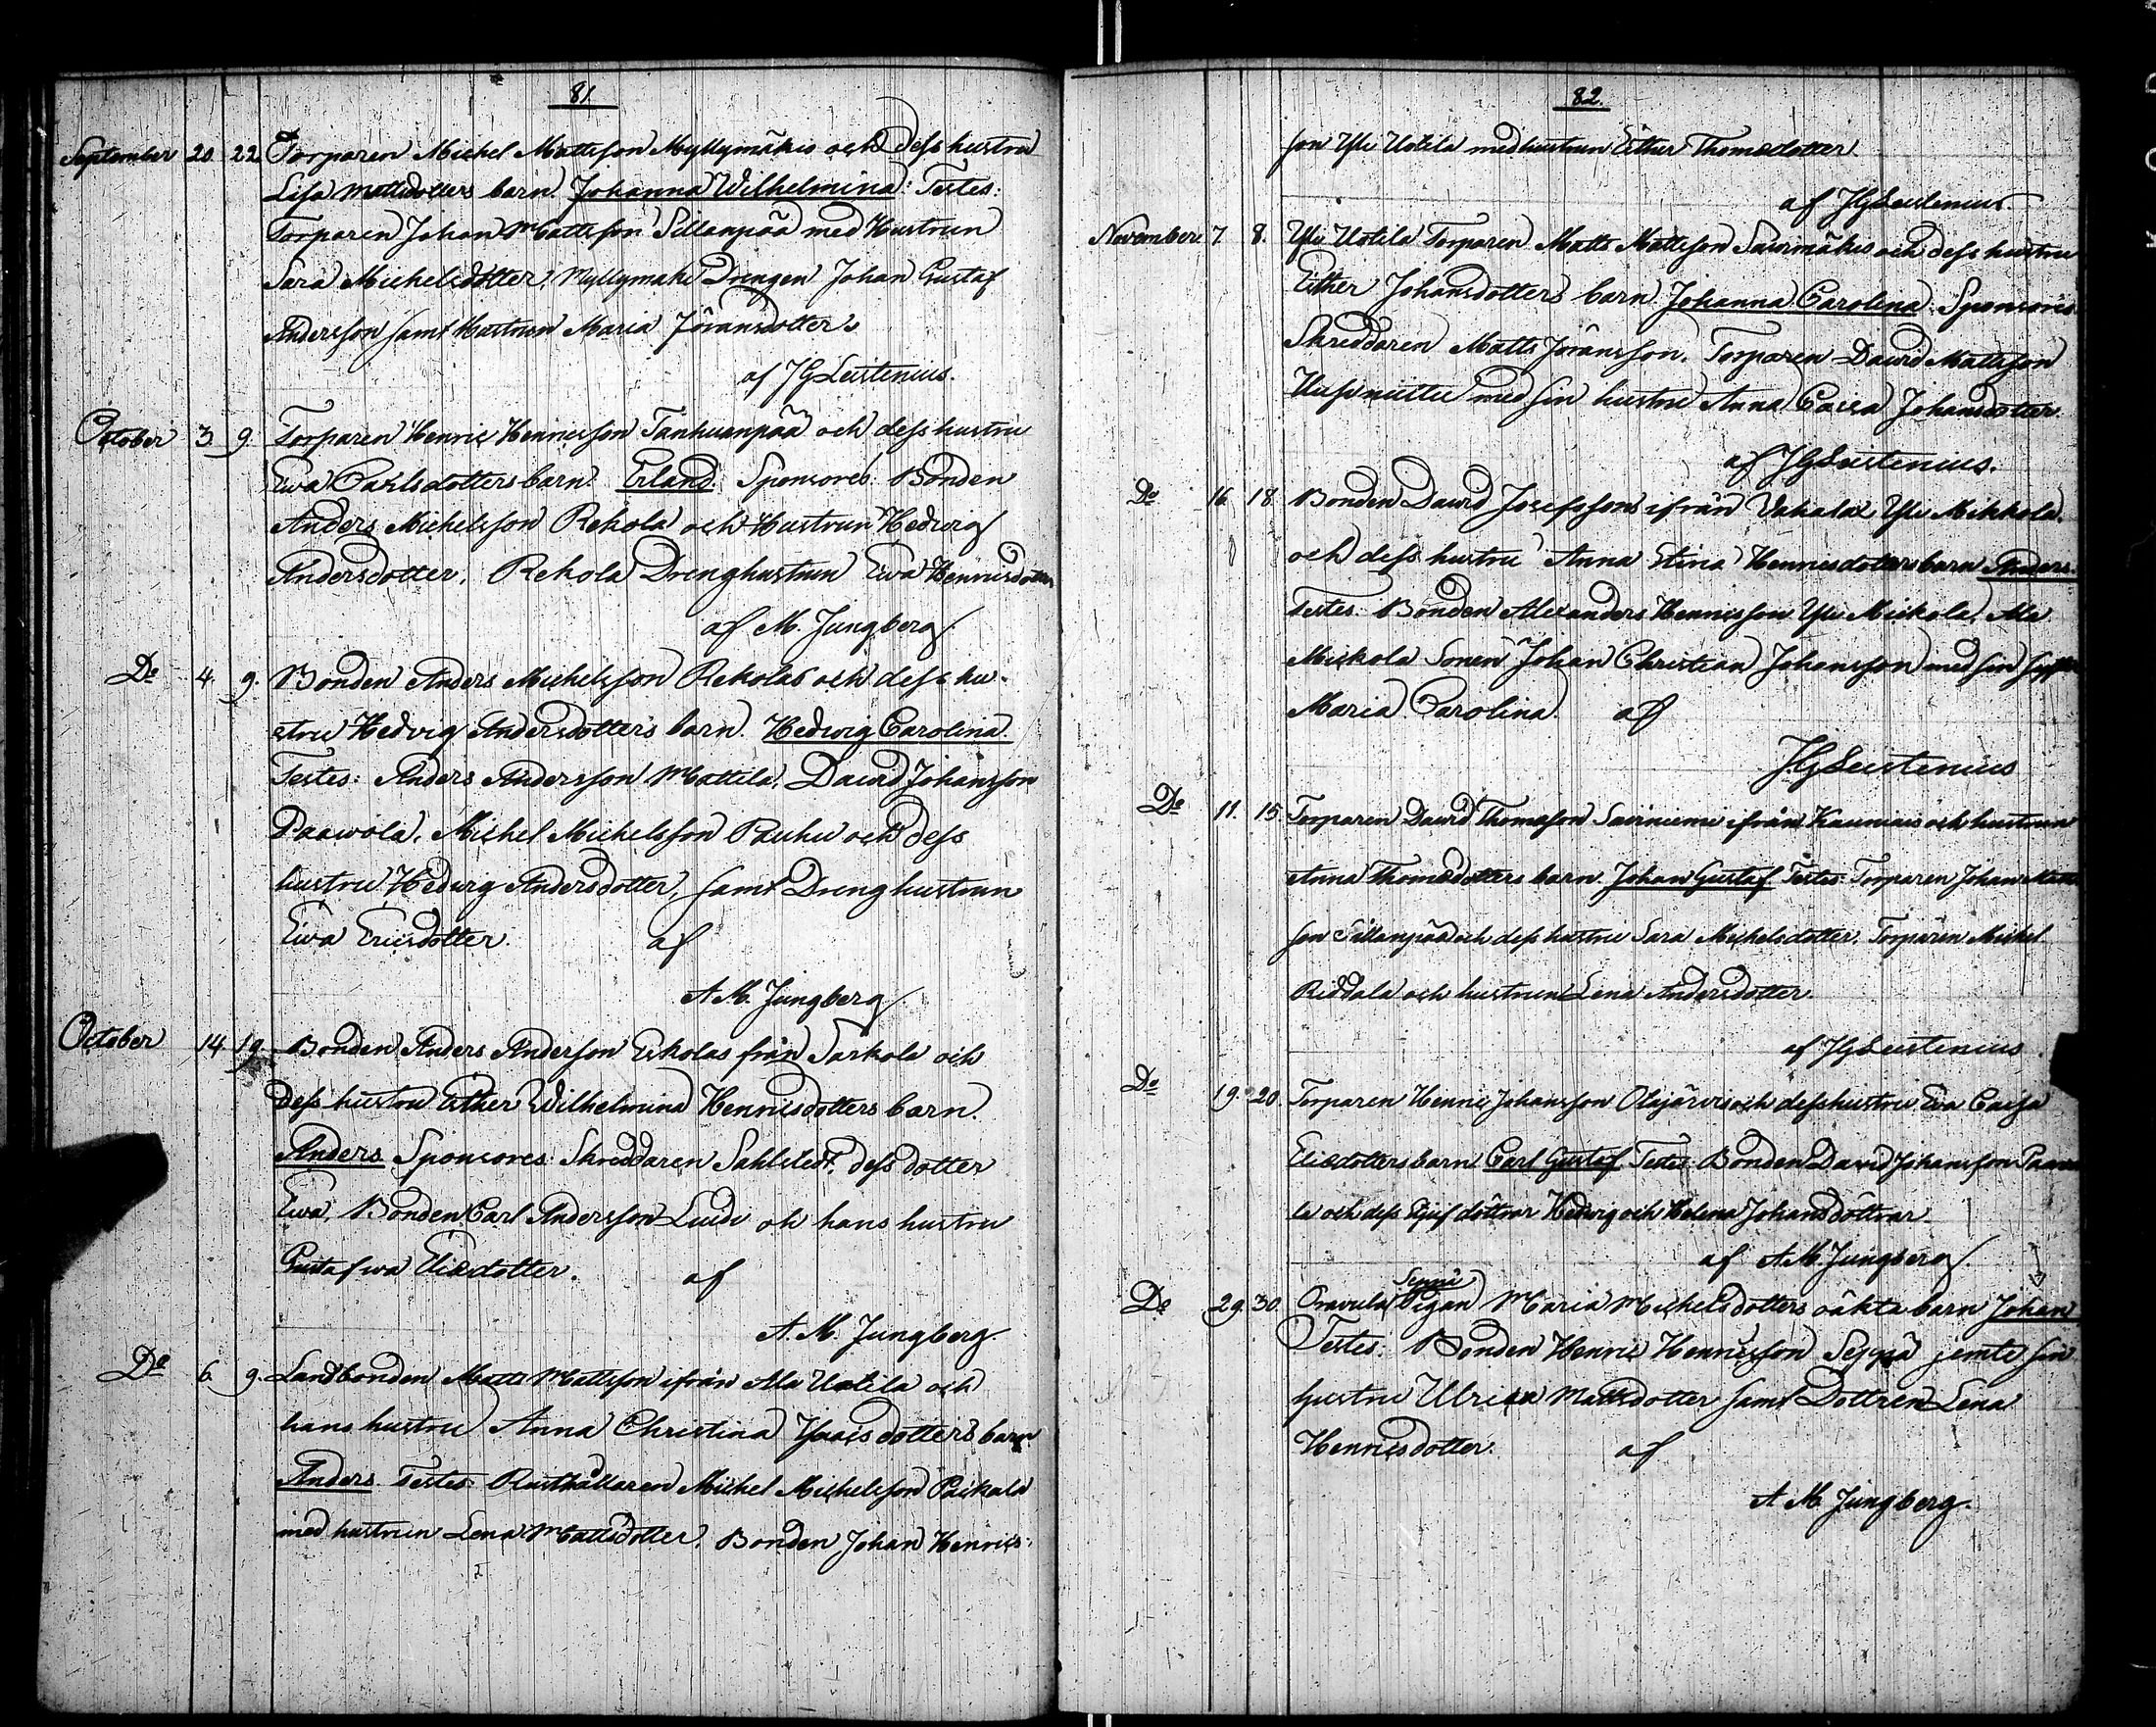 81.
September 20. 22. Torparen Michel Mattsson Myllymäkis och dess hustru
Lisa Mattsdotters barn. Johanna Wilhelmina: Testes:
Torparen Johan Mattsson Sillanpää med Hustrun
Sara Michelsdotter, Myllymäki Drengen Johan Gustaf
Andersson samt Hustrun Maria Jöransdotter
af JGLeistenius.
October 3. 9. Torparen Henric Henricsson Tanhuanpää och dess hustru
Ewa Carlsdotters barn. Erland. Sponsores: Bonden
Anders Michelsson Rekola och Hustrun Hedwig
Andersdotter, Rekola Drenghustrun Ewa Henricsdotter
af M. Jungberg
Do 4. 9. Bonden Anders Michelsson Rekolas och dess hu-
stru Hedvig Andersdotters barn. Hedwig Carolina.
Testes: Anders Andersson Mattila, David Johansson
Paawola, Michel Michelsson Rauhu och dess
hustru Hedwig Andersdotter, samt Drenghustrun
Ewa Ericsdotter. af
A M. Jungberg
October 14. 19. Bonden Anders Anderson Erkolas från Sarkola och
dess hustru Esther Wilhelmina Henricsdotters barn.
Anders. Sponsores: Skreddaren Sahlstedt, dess dotter
Ewa, Bonden Carl Andersson Luidi oh hans hustru
Gustafwa Eliædotter. af
A. M. Jungberg.
Do 6. 9. Landbonden Matts Mattsson ifrån Ala Uotila och
hans hustru Anna Christina Isaacsdotters barn
Anders. Testes: Rusthållaren Michel Michelsson Paikala
med hustrun Lena Mattsdotter, Bonden Johan Henrics-
82.
son Yli Uotila med hustrun Esther Thomædotter.
af JGLeistenius.
November. 7. 8. Yli Uotila Torparen Matts Mattsson Saurmäkis och dess hustru
Esther Johansdotters barn Johanna Carolina: Sponsores:
Skreddaren Matts Jöransson, Torparen David Mattsson
Uusiniittu med sin hustru Anna Caisa Johansdotter.
af JGLeistenius.
Do 16. 18. Bonden David Josefssons ifrån Vahalax Yli Mikkola.
och dess hustru Anna Stina Henricsdotters barn Anders.
Testes: Bonden Alexanders Henricsson Yli Mickola, Ala
Mickola Sonen Johan Christian Johansson med sin
Maria Carolina. af
JGLeistenius
Do 11. 15. Torparen David Thomasson Saviniemi ifrån Kauniais och hustrun
Anna Thomædotters barn Johan Gustaf Testes: Torparen Johan Matts
son Sillanpää och dess hustru Sara Michelsdotter, Torparen Michel
Riddala och hustrun Lena Andersdotter.
af JGLeistenius.
Do 19. 20. Torparen Henric Johansson Olajärvis och dess hustru Eva Caisa
Eliædotters barn Carl Gustaf. Testes: Bonden David Johansson Paawo
la och dess Styfdöttrar Hedwig och Helena Johansdöttrar.
af A.M. Jungberg.
Seppä
Do 29. 30. Onnula Pigan Maria Michelsdotters oäkta barn Johan
Testes: Bonden Henric Henricsson Seppä jemte sin
hustru Ulrica Mattsdotter samt Dottren Lena
Henricsdotter. af
A M. Jungberg.